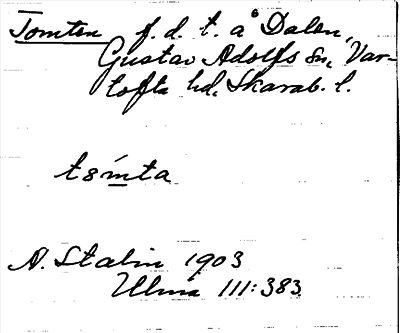 Tomten f. d. t. å Dalen,
Gustav Adolfs sn, Var-
tofta hd, Skarab. l.
tsḿta
A. Stalin 1903
Ulma 111:383